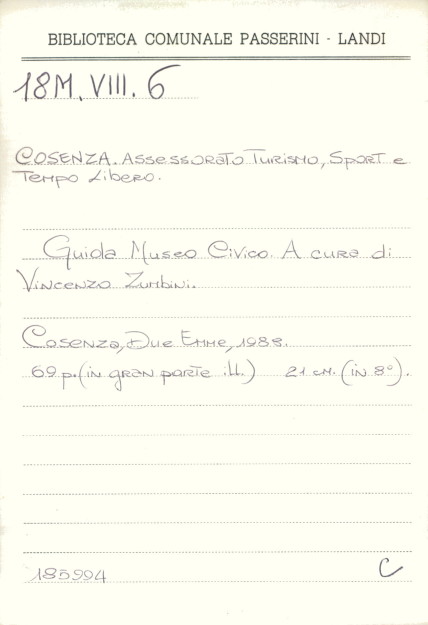 BIBLIOTECA COMUNALE PASSERINI - LANDI
18M. VIII. 6
COSENZA. ASSESSORATO TURISMO, SPORT e
TEMPO LIBERO.
Guida Museo Civico. A cura di
VINCENZO ZUMBINI.
Cosenza, Due EMME, 1988.
69 p. (in gran parte ill.) 21 cm. (in 8°).
185994
C